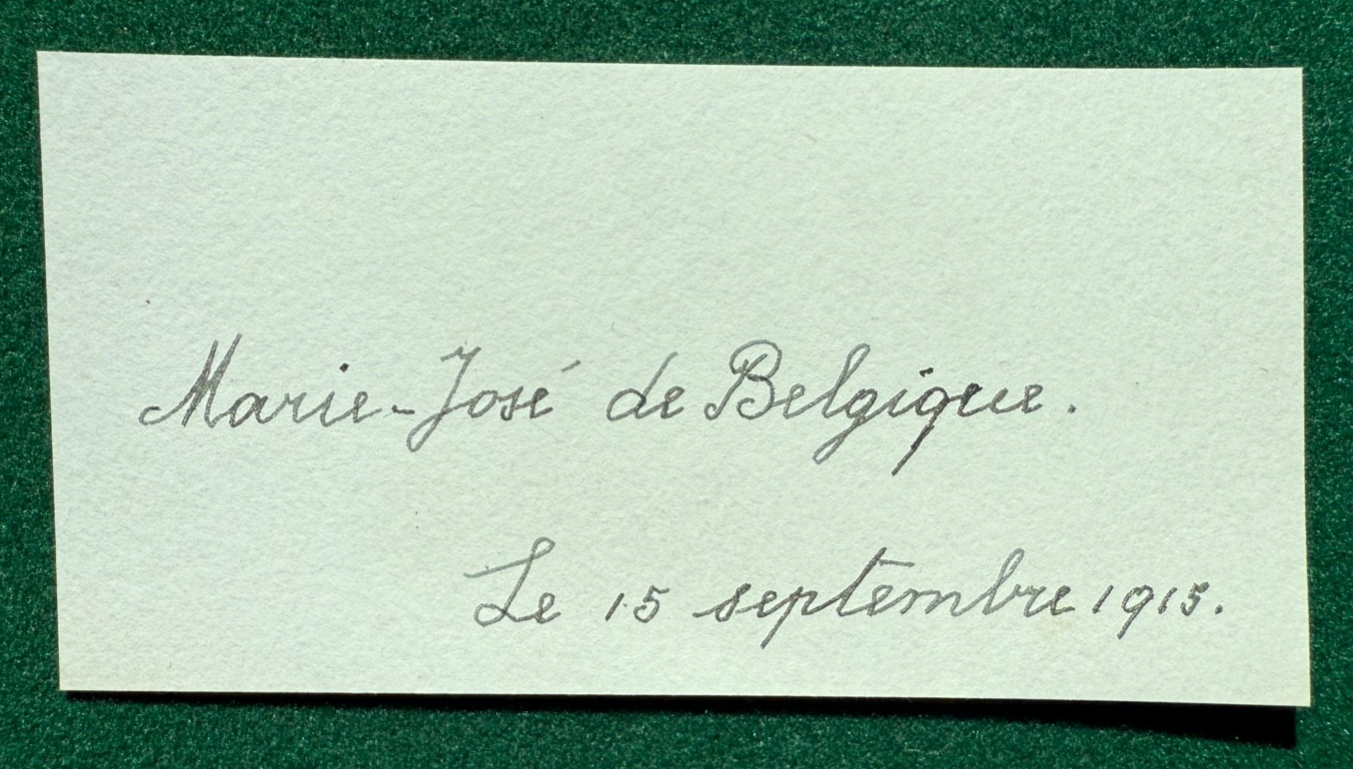 Marie-José de Belgique.
Le 15 septembre 1915.